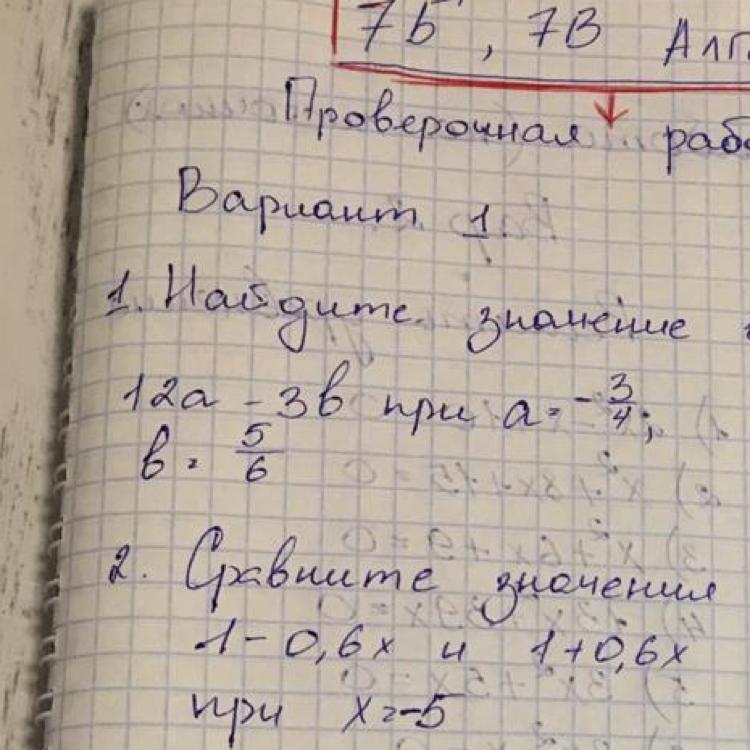 7Б, 7В Алг
Проверочная раб
Вариант 1.
1. Найдите значение
12a - 3b при a = -3/4;
b = 5/6
2. Сравните значения
1 - 0,6x и 1 + 0,6x
при x = -5